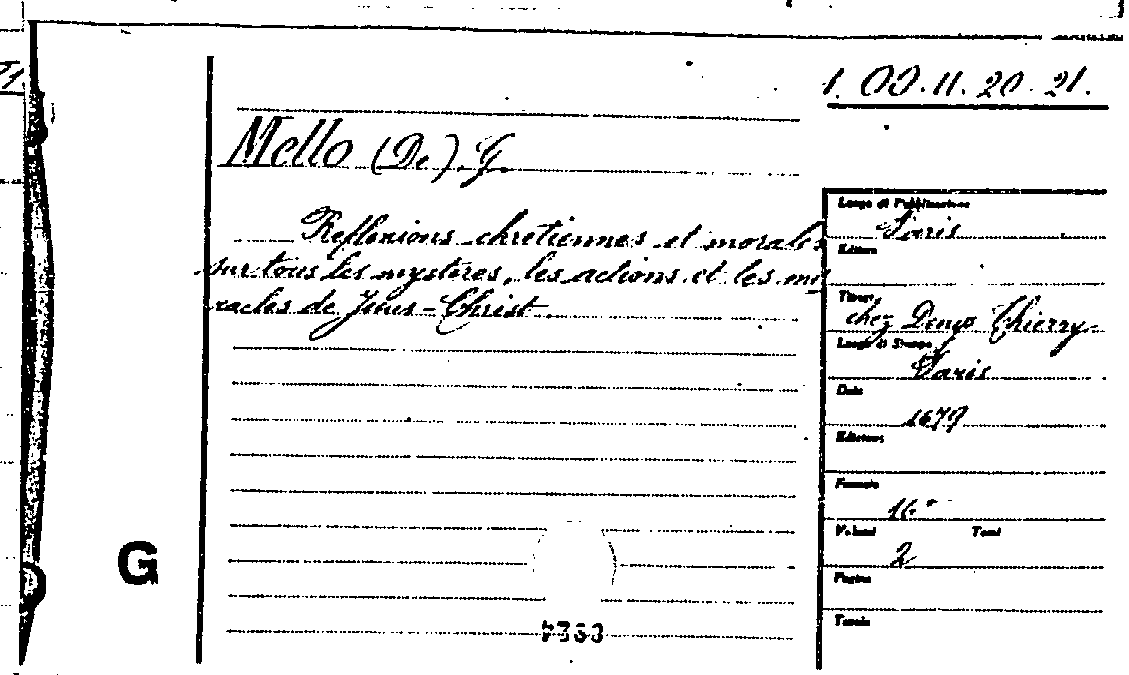 1. OO. 11. 20. 21.
Mello (De) G.
Reflexions chretiennes et morales
sur tous les mystères, les actions et les mi
racles de Jesus-Christ.
Luogo di Pubblicazione
Paris
Editore
Tipogr.
chez Denys Thierry
Luogo di Stampa
Paris
Data
1679
Edizione
Formato
16°
Volumi Tomi
2
Pagine
Tavole
G